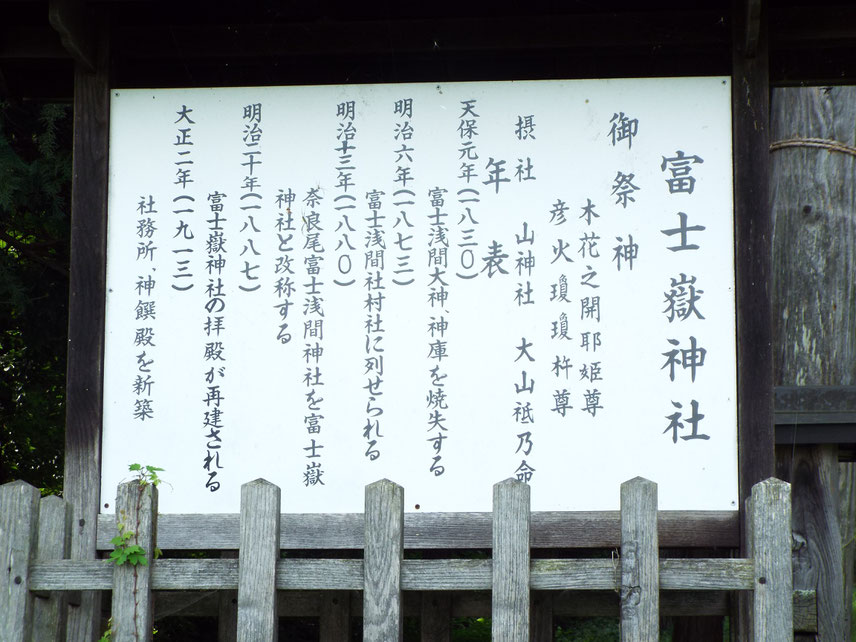 富士嶽神社
御祭神
木花之開耶姫尊
彦火瓊瓊杵尊
摂社 山神社 大山祇乃命
年表
天保元年(一八三〇)
富士浅間大神、神庫を焼失する
明治六年(一八七三)
富士浅間社村社に列せられる
明治十三年(一八八〇)
奈良尾富士浅間神社を富士嶽
神社と改称する
明治二十年(一八八七)
富士嶽神社の拝殿が再建される
大正二年(一九一三)
社務所、神饌殿を新築